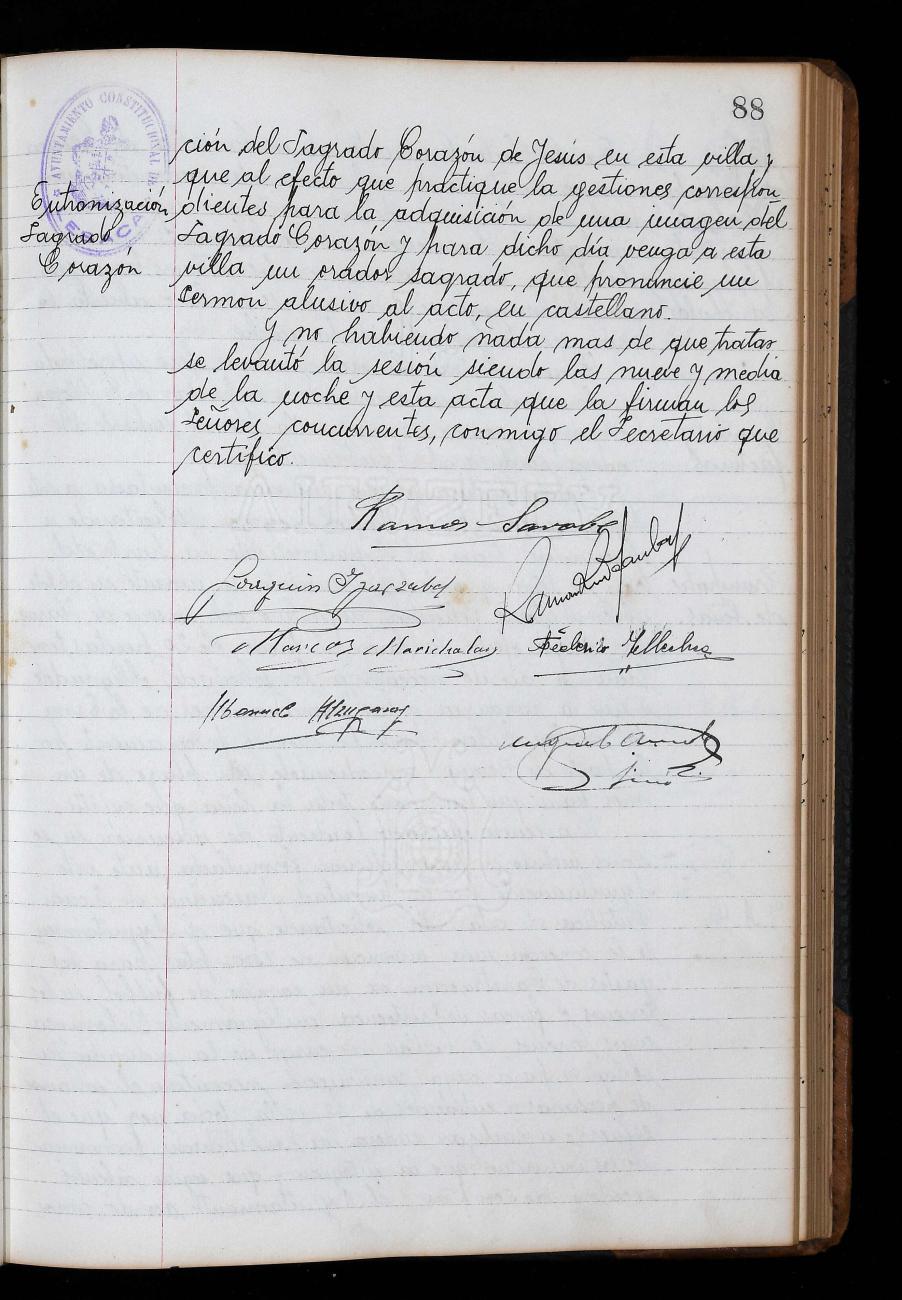 88
AYUNTAMIENTO CONSTITUCIONAL DE
Entronización
Sagrado
Corazón
ción del Sagrado Corazón de Jesús en esta villa y
que al efecto que practique la gestiones correspon
dientes para la adquisición de una imagen del
Sagrado Corazón y para dicho día venga a esta
villa un orador sagrado, que pronuncie un
sermon alusivo al acto, en castellano.
Y no habiendo nada mas de que tratar
se levantó la sesión siendo las nueve y media
de la noche y esta acta que la firman los
Señores concurrentes, conmigo el Secretario que
certifico.
Ramos
Joaquin
Marcos Marichalar
Federico
Manuel